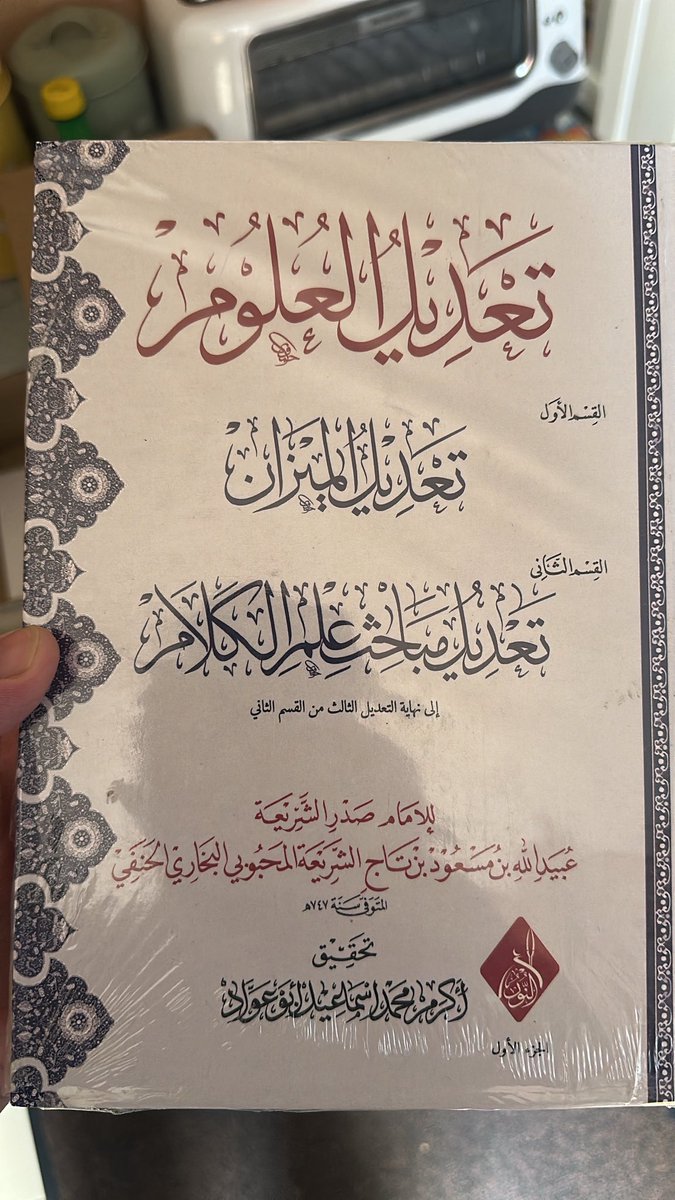 تَعْدِيلُ العُلُومِ
القِسْم الأَوَّل
تَعْدِيلُ المِيزَان
القِسْم الثَّانِي
تَعْدِيلُ مَبَاحِثِ عِلْمِ الكَلَامِ
إلى نهاية التعديل الثالث من القسم الثاني
لِلإمَام صَدْرِ الشَّرِيْعَة
عُبَيْدِ اللهِ بْنِ مَسْعُوْدْ بْن تَاج الشَّرِيْعَة المَحْبُوبِي البُخَارِيّ الحَنَفِيّ
المتَوَفَّى سَنَة ٧٤٧هـ
تَحْقِيْق
أكرم محمد إسماعيد أبو عوَّاد
النُّور
الجزء الأول